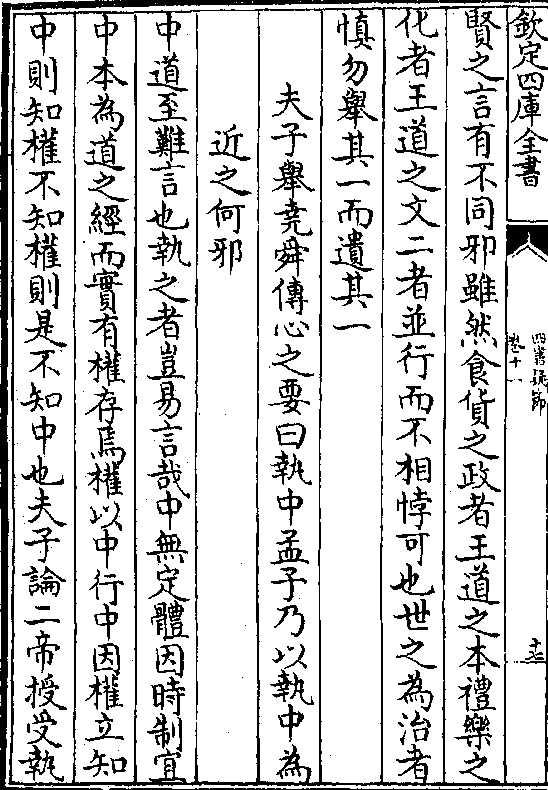 欽定四庫全書
四書疑節
卷十一
十七
賢之言有不同邪雖然食貨之政者王道之本禮樂之
化者王道之文二者並行而不相悖可也世之為治者
慎勿舉其一而遺其一
夫子舉堯舜傳心之要曰執中孟子乃以執中為
近之何邪
中道至難言也執之者豈易言哉中無定體因時制宜
中本為道之經而實有權存焉權以中行中因權立知
中則知權不知權則是不知中也夫子論二帝授受執